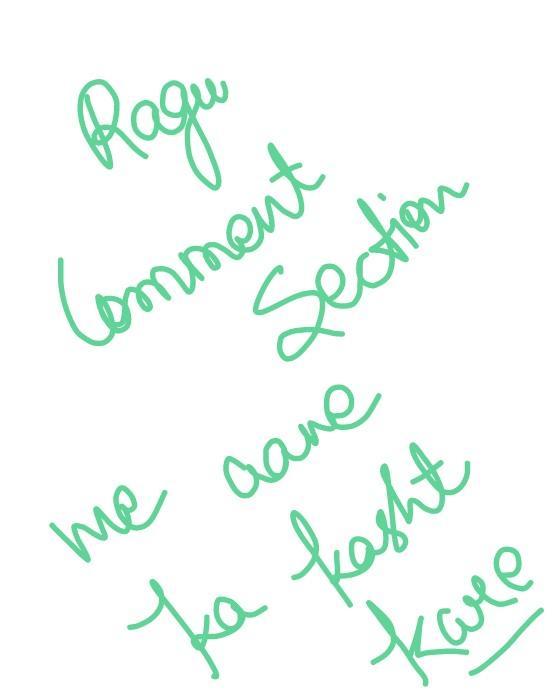 Ragu
Comment
Section
me aane
ka kasht
kare